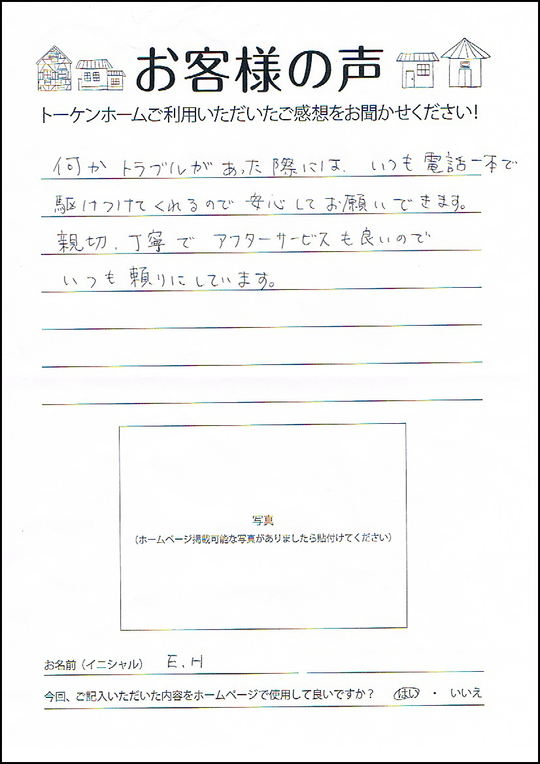 お客様の声
トーケンホームご利用いただいたご感想をお聞かせください!
何かトラブルがあった際には、いつも電話一本で
駆けつけてくれるので安心してお願いできます。
親切、丁寧でアフターサービスも良いので
いつも頼りにしています。
写真
(ホームページ掲載可能な写真がありましたら貼付けてください)
お名前(イニシャル) E.H
今回、ご記入いただいた内容をホームページで使用して良いですか? はい ・ いいえ